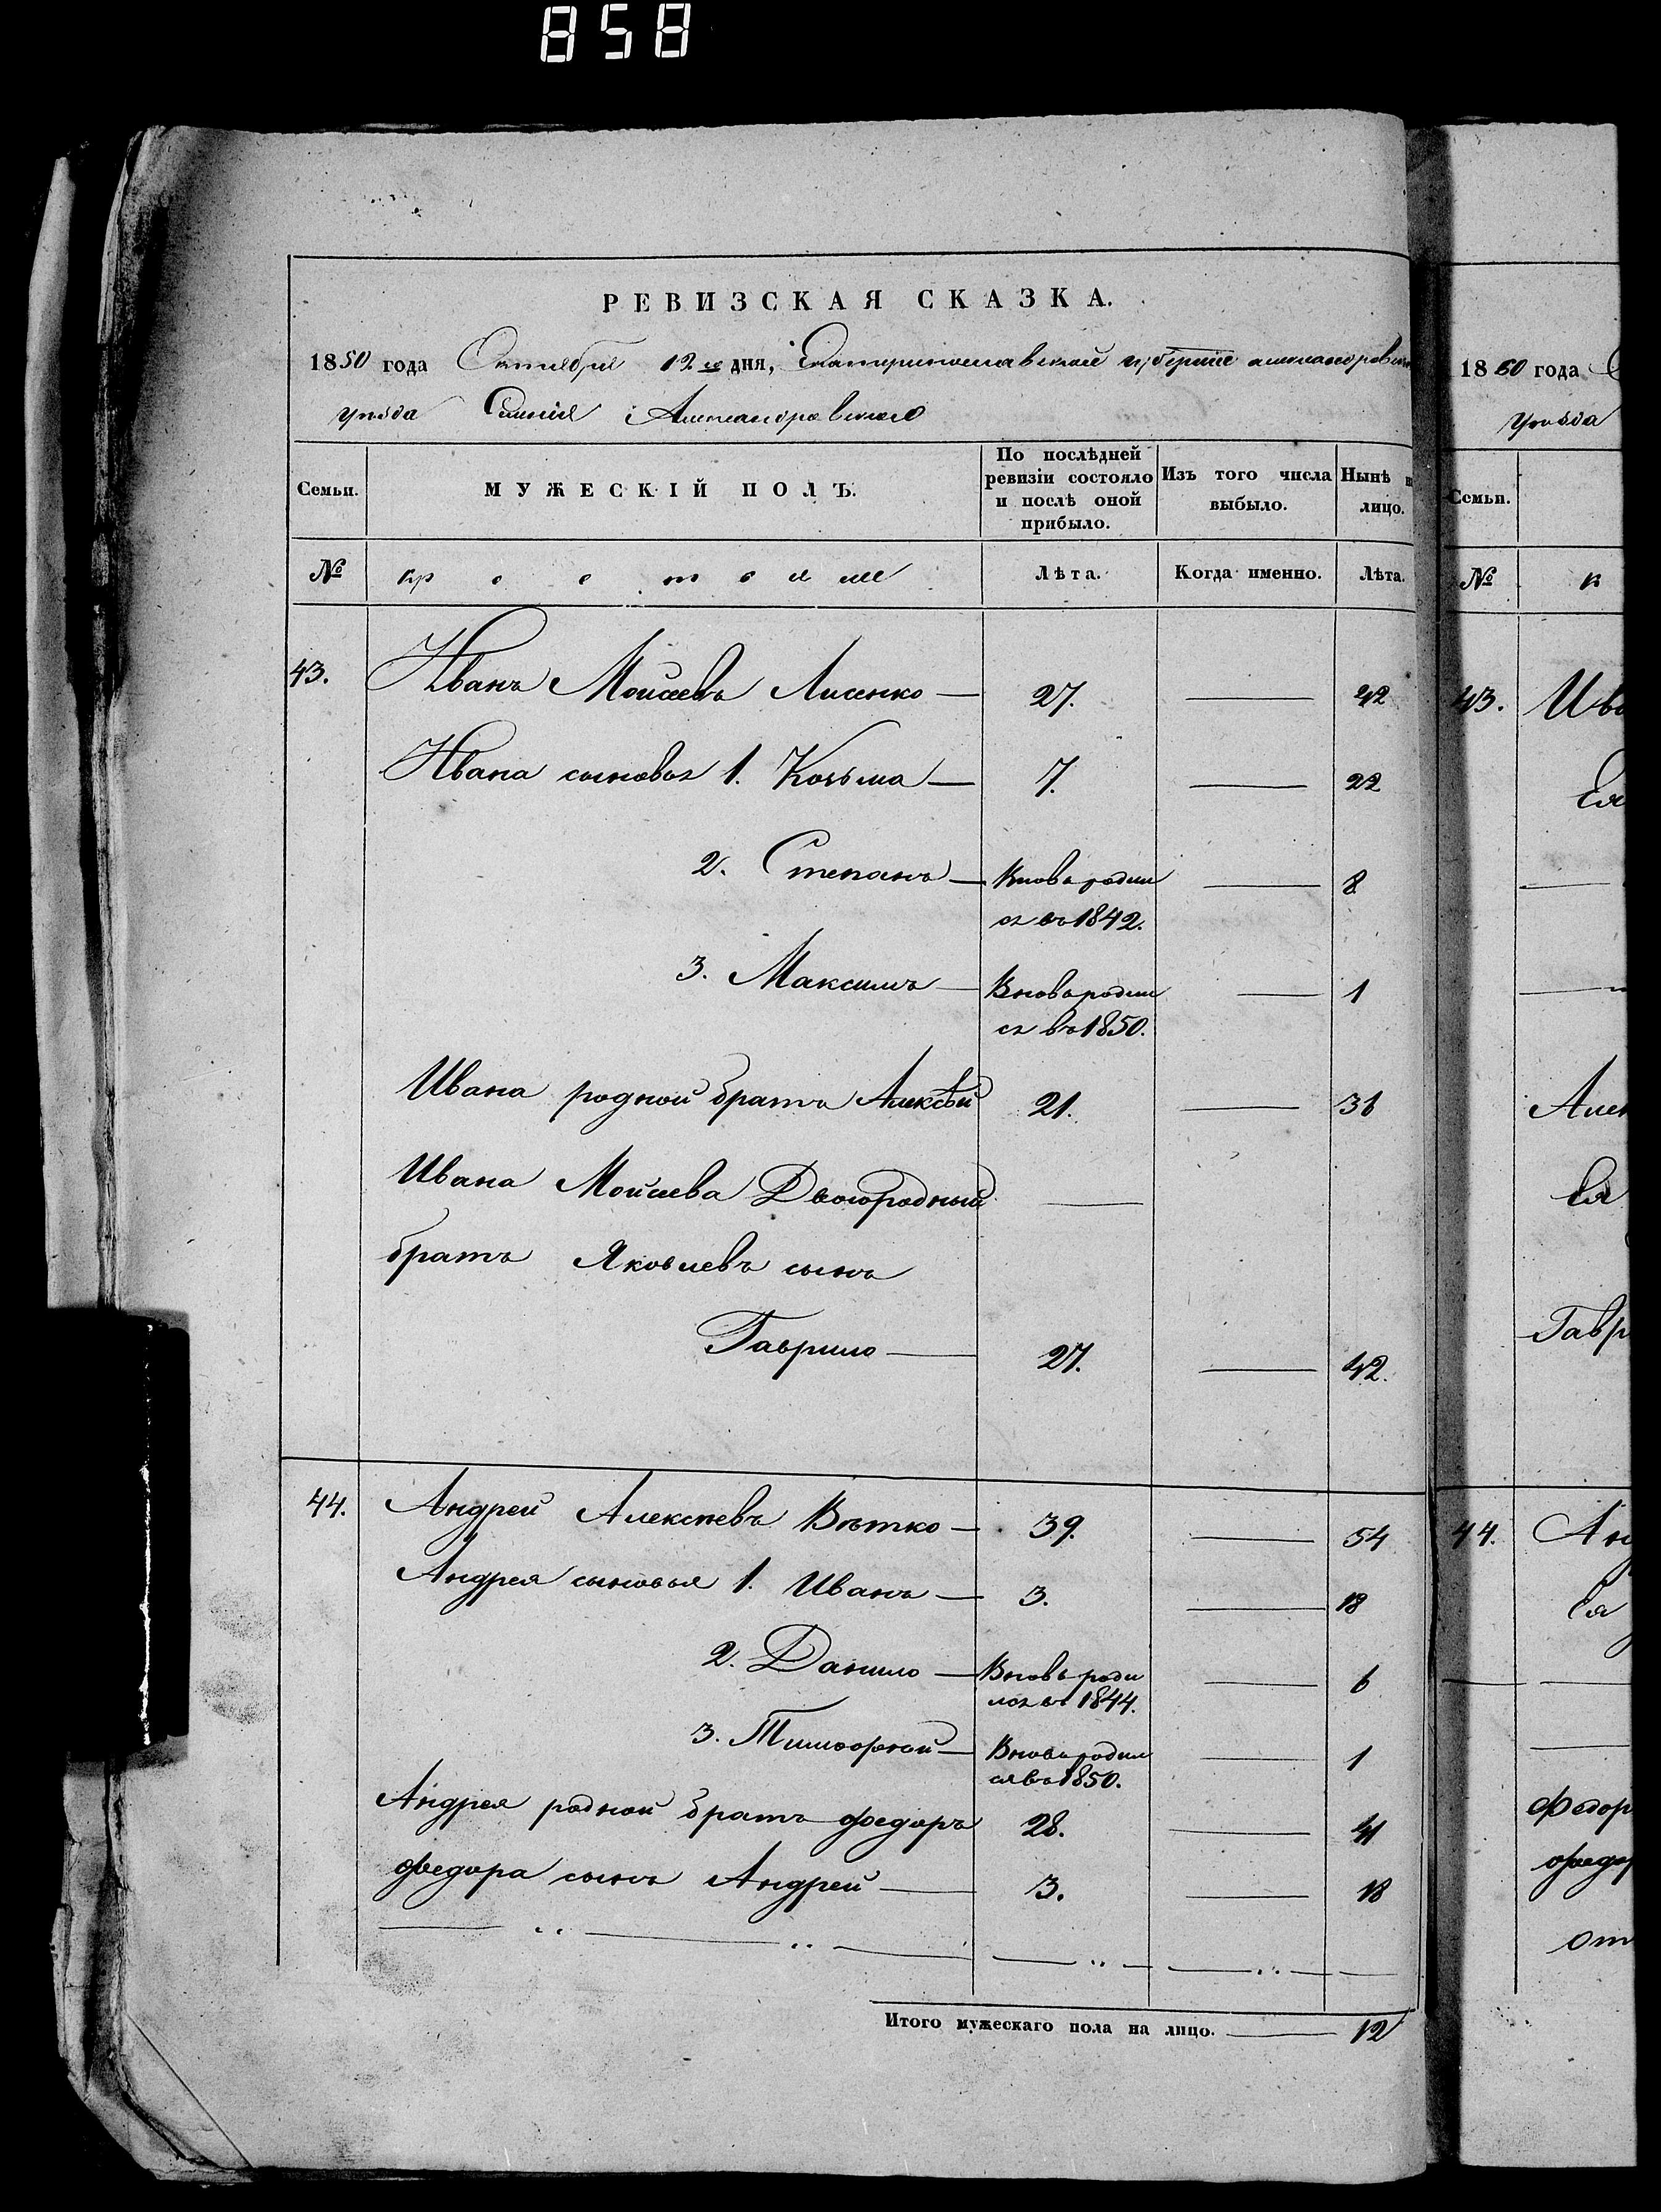 858
РЕВИЗСКАЯ СКАЗКА.
1850 года Октября 12 го дня, Екатеринославской губернии Александровскаго
уѣзда Селенія Александровскаго
Семьи.
МУЖЕСКІЙ ПОЛЪ.
По послѣдней ревизіи состояло и послѣ оной прибыло.
Изъ того числа выбыло.
Нынѣ на лицо.
№
Лѣта.
Когда именно.
Лѣта.
43. Иванъ Моисеевъ Лисенко — 27. — 42
Ивана сыновья 1. Козьма — 7. — 22
2. Степанъ — Вновь родил — 8
ся въ 1842.
3. Максимъ — Вновь родил — 1
ся въ 1850.
Ивана родной братъ Алексѣй 21. — 36
Ивана Моисеева Двоюродный —
братъ Яковлевъ сынъ
Гаврило — 27. — 42.
44. Андрей Алексѣевъ Вѣтко — 39. — 54
Андрея сыновья 1. Иванъ — 3. — 18
2. Данило — Вновь роди — 6
лся въ 1844.
3. Тимофей — Вновь родил — 1
ся въ 1850.
Андрея родной братъ Федоръ 28. — 41
Федора сынъ Андрей — 3. — 18
Итого мужескаго пола на лицо. — 12
1850 года
уѣзда
Семьи.
№
43. Ив
Ея
Алек
Ея
Гавр
44. Анд
Ея
Федор
Федор
от